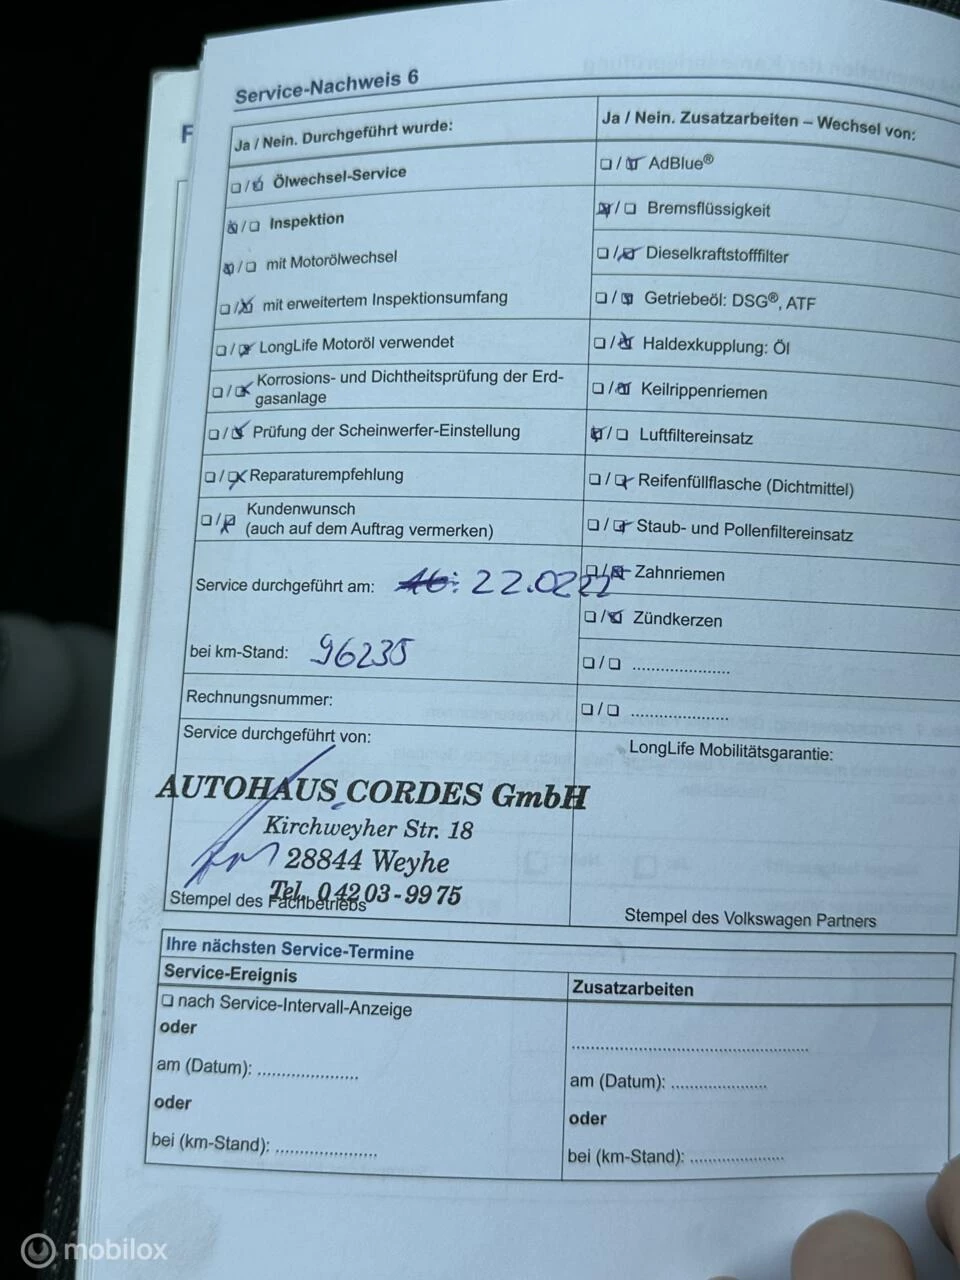 Service-Nachweis 6
Ja / Nein. Durchgeführt wurde:
❏ / ❏ Ölwechsel-Service
❏ / ❏ Inspektion
❏ / ❏ mit Motorölwechsel
❏ / ❏ mit erweitertem Inspektionsumfang
❏ / ❏ LongLife Motoröl verwendet
❏ / ❏ Korrosions- und Dichtheitsprüfung der Erd-
gasanlage
❏ / ❏ Prüfung der Scheinwerfer-Einstellung
❏ / ❏ Reparaturempfehlung
❏ / ❏ Kundenwunsch
(auch auf dem Auftrag vermerken)
Service durchgeführt am: 22.0222
bei km-Stand: 96235
Rechnungsnummer:
Service durchgeführt von:
AUTOHAUS CORDES GmbH
Kirchweyher Str. 18
28844 Weyhe
Tel. 0 42 03 - 99 75
Stempel des Fachbetriebs
Ja / Nein. Zusatzarbeiten – Wechsel von:
❏ / ❏ AdBlue®
❏ / ❏ Bremsflüssigkeit
❏ / ❏ Dieselkraftstofffilter
❏ / ❏ Getriebeöl: DSG®, ATF
❏ / ❏ Haldexkupplung: Öl
❏ / ❏ Keilrippenriemen
❏ / ❏ Luftfiltereinsatz
❏ / ❏ Reifenfüllflasche (Dichtmittel)
❏ / ❏ Staub- und Pollenfiltereinsatz
❏ / ❏ Zahnriemen
❏ / ❏ Zündkerzen
❏ / ❏ .....................
❏ / ❏ .....................
LongLife Mobilitätsgarantie:
Stempel des Volkswagen Partners
Ihre nächsten Service-Termine
Service-Ereignis
❏ nach Service-Intervall-Anzeige
oder
am (Datum): .....................
oder
bei (km-Stand): .....................
Zusatzarbeiten
..................................................
am (Datum): .....................
oder
bei (km-Stand): .....................
mobilox